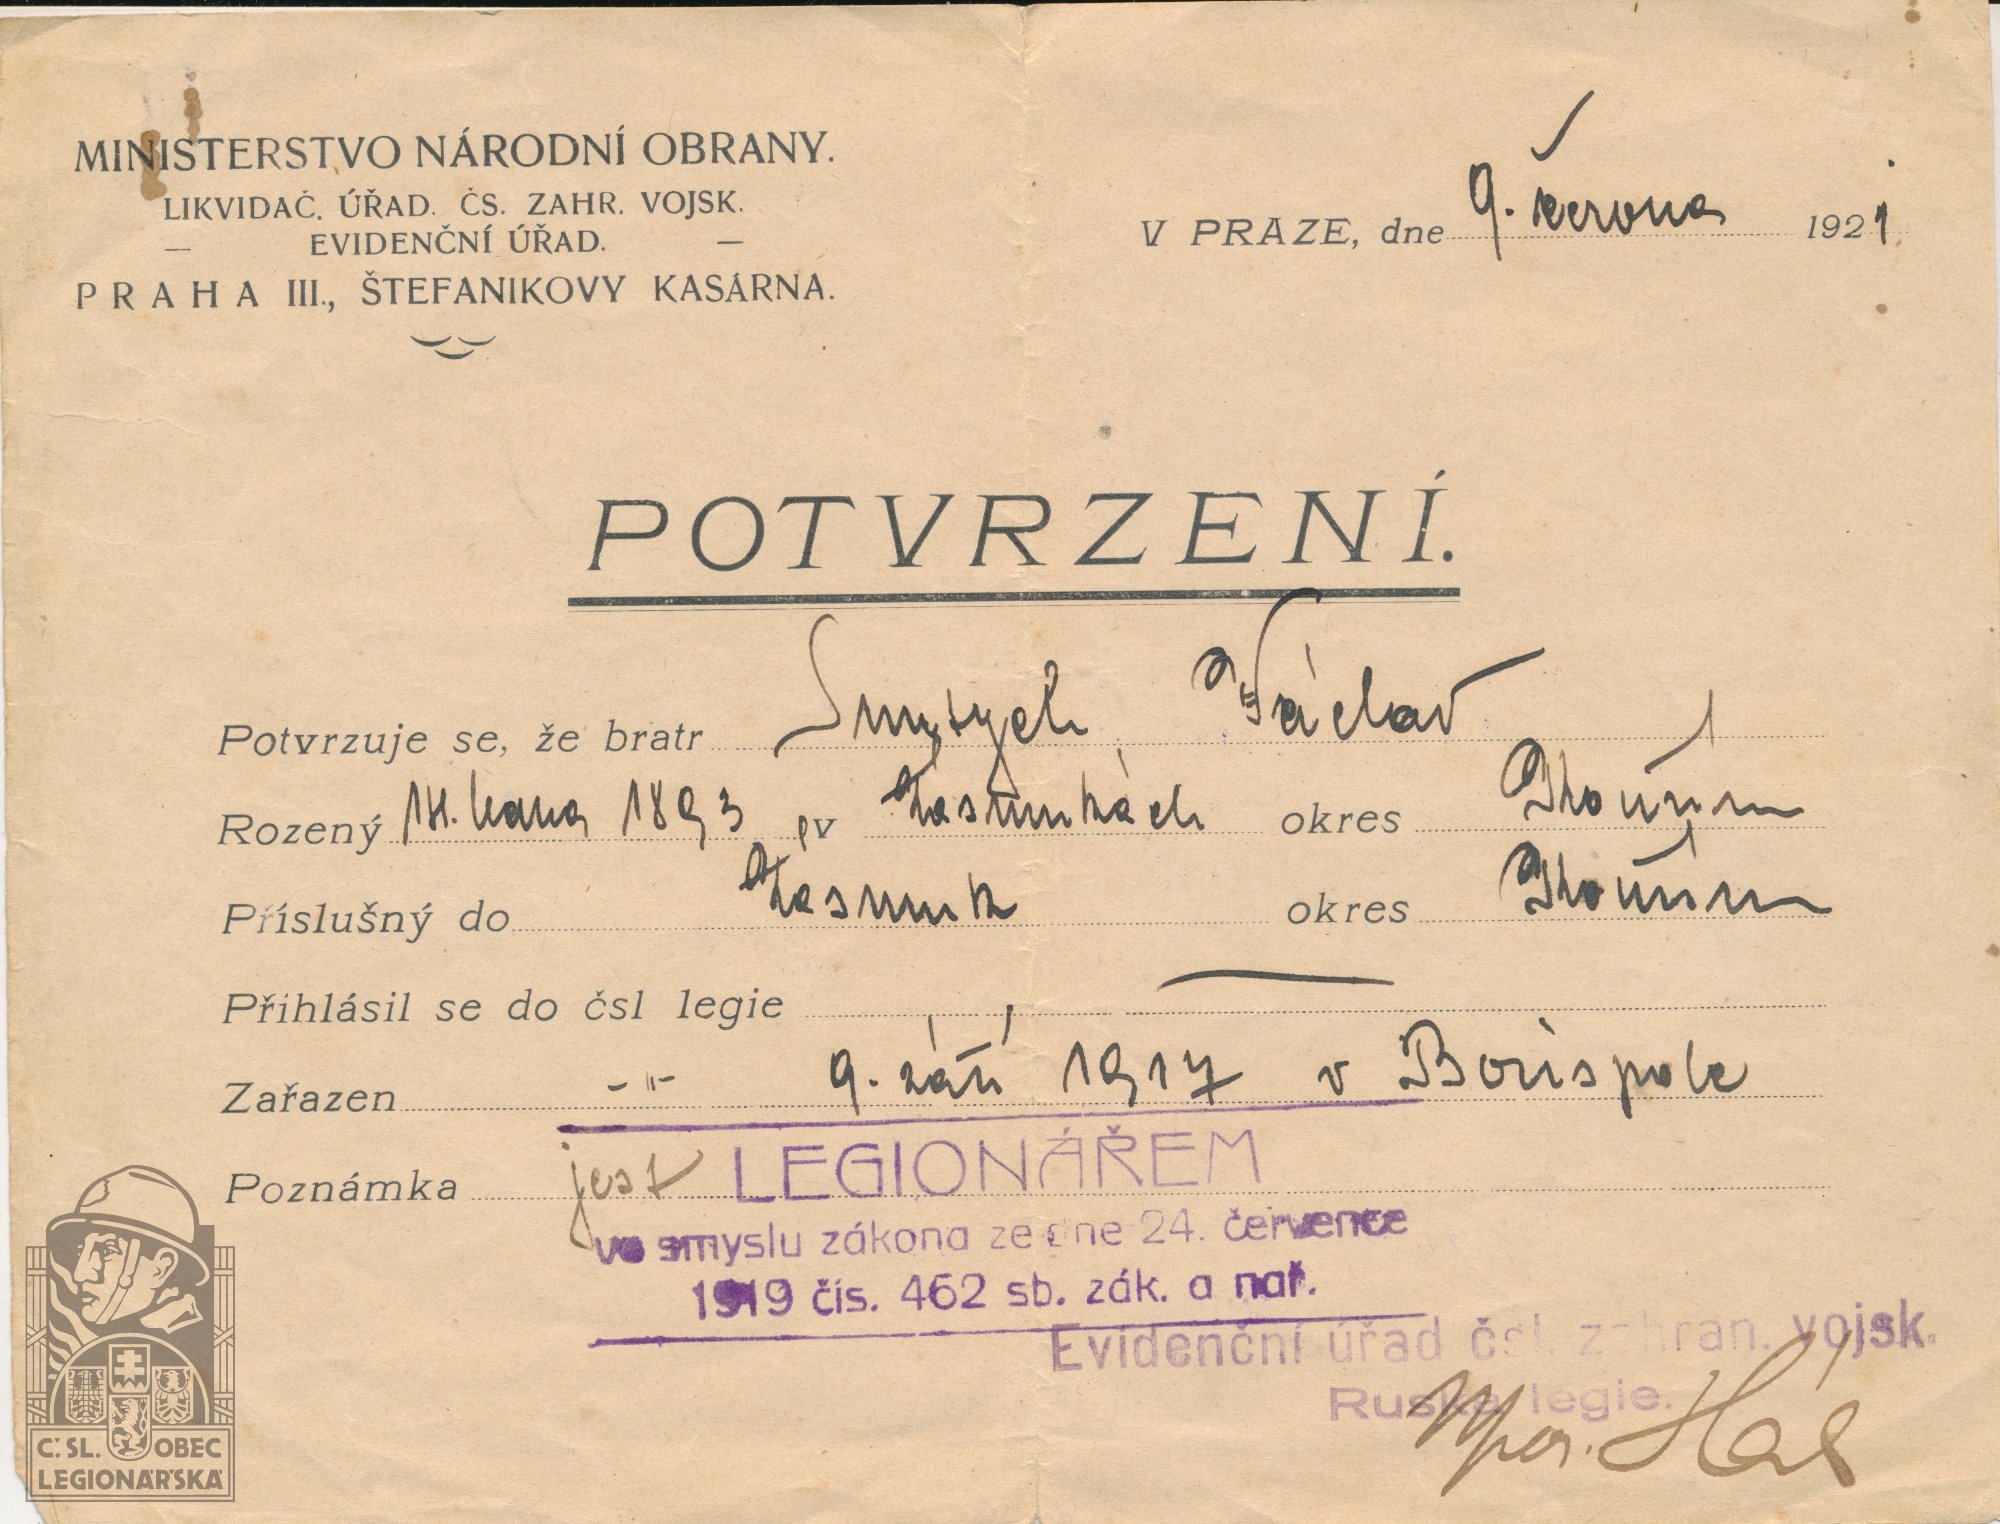 MINISTERSTVO NÁRODNÍ OBRANY.
LIKVIDAČ. ÚŘAD. ČS. ZAHR. VOJSK.
— EVIDENČNÍ ÚŘAD. —
PRAHA III., ŠTEFANIKOVY KASÁRNA.
V PRAZE, dne 9. června 1921
POTVRZENÍ.
Potvrzuje se, že bratr Smutych Václav
Rozený 14. 1893 v Zásmukách okres Kouřim
Příslušný do Zásmuk okres Kouřim
Přihlásil se do čsl legie —
Zařazen -"- 9. září 1917 v Borispole
Poznámka jest LEGIONÁŘEM
ve smyslu zákona ze dne 24. července
1919 čís. 462 sb. zák. a nař.
Evidenční úřad čsl. zahran. vojsk.
Ruská legie.
Č.SL. OBEC
LEGIONÁŘSKÁ